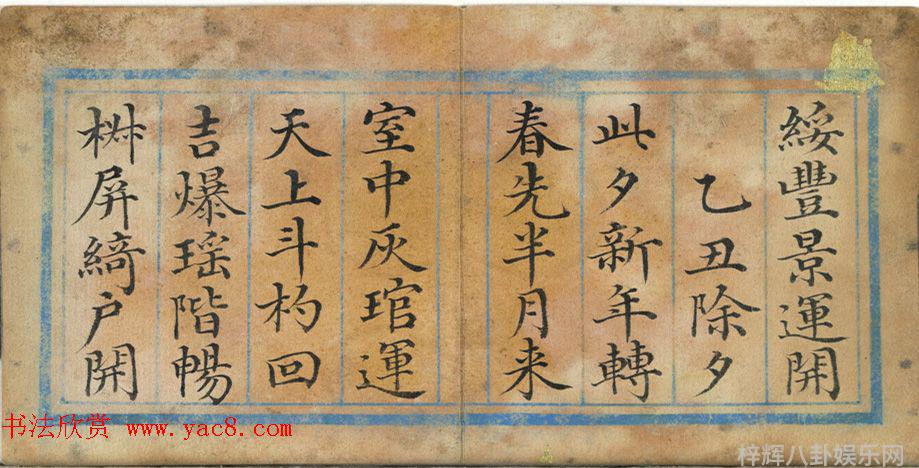 綏豐景運開
乙丑除夕
此夕新年轉
春先半月来
室中灰琯運
天上斗杓回
吉爆瑶階暢
椕屏綺户開
书法欣赏 www.yac8.com
梓辉八卦娱乐网